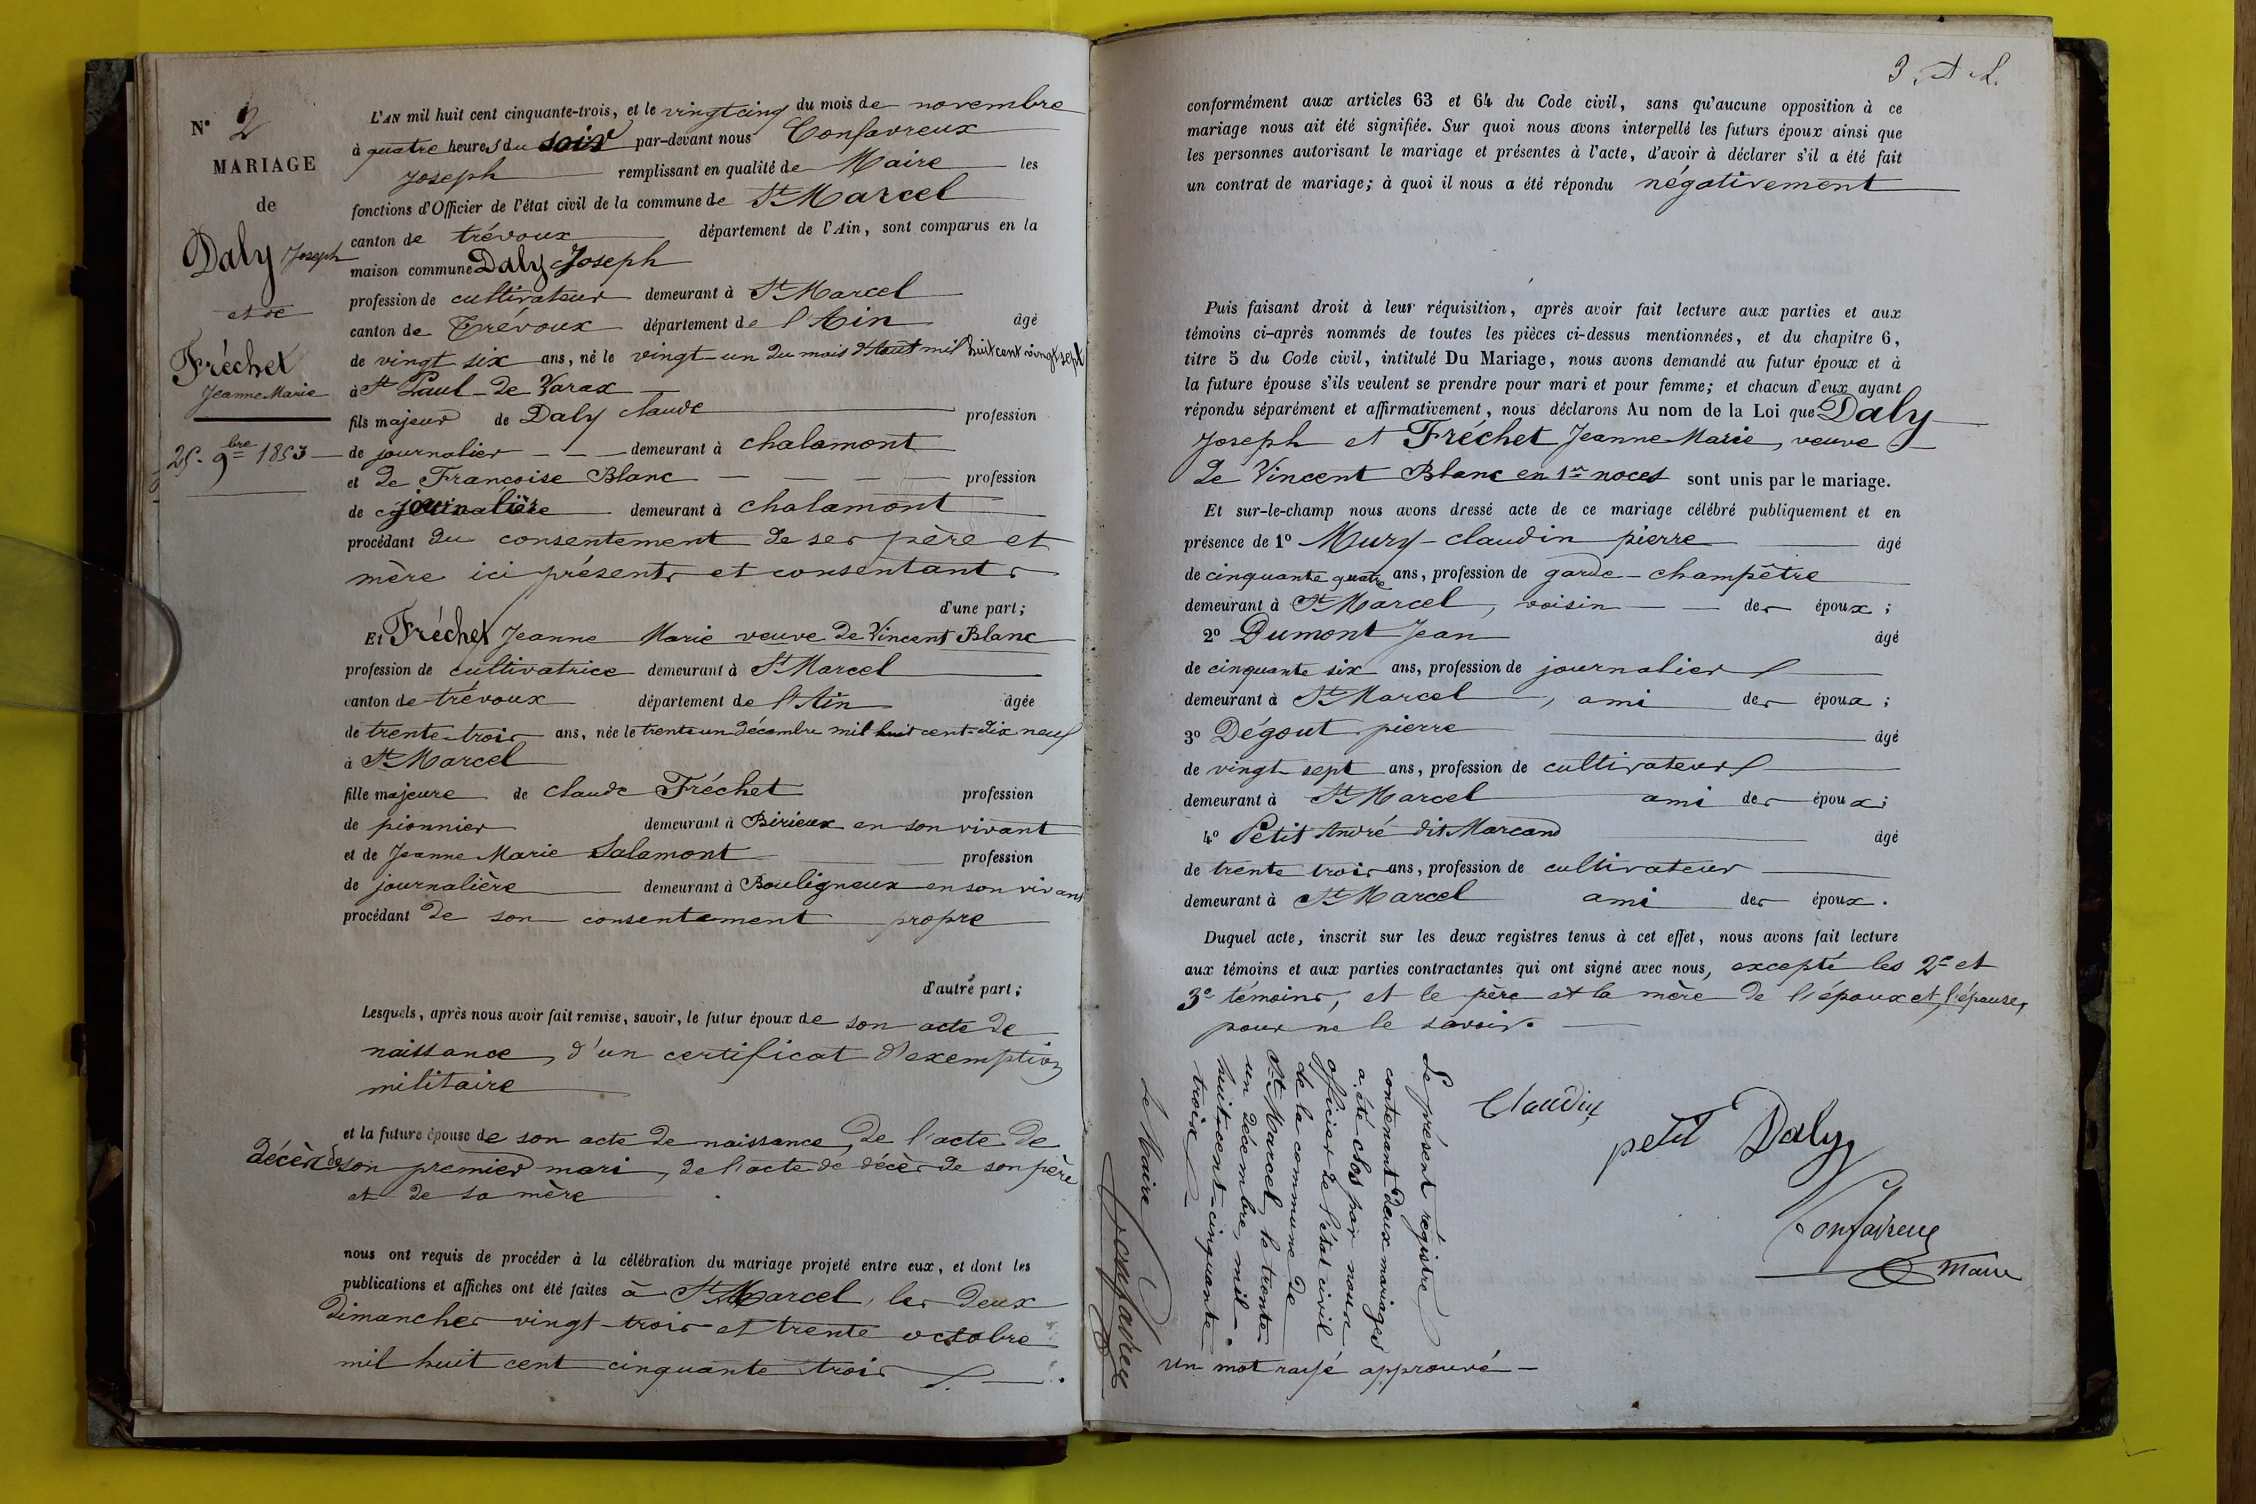 N° 2
MARIAGE
de
Daly Joseph
et de
Fréchet
Jeanne Marie
25. 9bre 1853
L'AN mil huit cent cinquante-trois, et le vingt cinq du mois de novembre
à quatre heures du soir par-devant nous Confavreux
Joseph remplissant en qualité de Maire les
fonctions d'Officier de l'état civil de la commune de St Marcel
canton de trévoux département de l'Ain, sont comparus en la
maison commune Daly Joseph
profession de cultivateur demeurant à St Marcel
canton de Trévoux département de l'Ain âgé
de vingt six ans, né le vingt-un du mois d'Aout mil huit cent vingt sept
à St Paul-de Varax
fils majeur de Daly claude profession
de journalier demeurant à chalamont
et de Francoise Blanc profession
de journalière demeurant à chalamont
procédant du consentement de ses père et
mère ici présents et consentants
d'une part;
Et Fréchet Jeanne Marie veuve de Vincent Blanc
profession de cultivatrice demeurant à St Marcel
canton de trévoux département de l'Ain âgée
de trente-trois ans, née le trente un décembre mil huit cent-dix neuf
à St Marcel
fille majeure de claude Fréchet profession
de pionnier demeurant à Birieux en son vivant
et de Jeanne Marie Salamont profession
de journalière demeurant à Bouligneux en son vivant
procédant de son consentement propre
d'autre part;
Lesquels, après nous avoir fait remise, savoir, le futur époux de son acte de
naissance, d'un certificat d'exemption
militaire
et la future épouse de son acte de naissance, de l'acte de
décès de son premier mari, de l'acte de décès de son père
et de sa mère
nous ont requis de procéder à la célébration du mariage projeté entre eux, et dont les
publications et affiches ont été faites à St Marcel, les deux
dimanches vingt-trois et trente octobre
mil huit cent cinquante trois
3
conformément aux articles 63 et 64 du Code civil, sans qu'aucune opposition à ce
mariage nous ait été signifiée. Sur quoi nous avons interpellé les futurs époux ainsi que
les personnes autorisant le mariage et présentes à l'acte, d'avoir à déclarer s'il a été fait
un contrat de mariage; à quoi il nous a été répondu négativement
Puis faisant droit à leur réquisition, après avoir fait lecture aux parties et aux
témoins ci-après nommés de toutes les pièces ci-dessus mentionnées, et du chapitre 6,
titre 5 du Code civil, intitulé Du Mariage, nous avons demandé au futur époux et à
la future épouse s'ils veulent se prendre pour mari et pour femme; et chacun d'eux ayant
répondu séparément et affirmativement, nous déclarons Au nom de la Loi que Daly
Joseph et Fréchet Jeanne Marie, veuve
de Vincent Blanc en 1re noces sont unis par le mariage.
Et sur-le-champ nous avons dressé acte de ce mariage célébré publiquement et en
présence de 1° Mury-claudin pierre âgé
de cinquante quatre ans, profession de garde-champêtre
demeurant à St Marcel, voisin des époux;
2° Dumont Jean âgé
de cinquante six ans, profession de journalier
demeurant à St Marcel, ami des époux;
3° Dégout pierre âgé
de vingt-sept ans, profession de cultivateur
demeurant à St Marcel ami des époux;
4° Petit André dit Marcand âgé
de trente trois ans, profession de cultivateur
demeurant à St Marcel ami des époux.
Duquel acte, inscrit sur les deux registres tenus à cet effet, nous avons fait lecture
aux témoins et aux parties contractantes qui ont signé avec nous, excepté les 2e et
3e témoins, et le père et la mère de l'époux et l'épouse,
pour ne le savoir.
Claudin
petit Daly
Confavreux
Maire
Le présent régistre
contenant deux mariages
a été clos par nous
officier de l'état civil
de la commune de
St Marcel, le trente-
un décembre, mil-
huit-cent-cinquante
trois
le Maire
Confavreux
un mot rayé approuvé